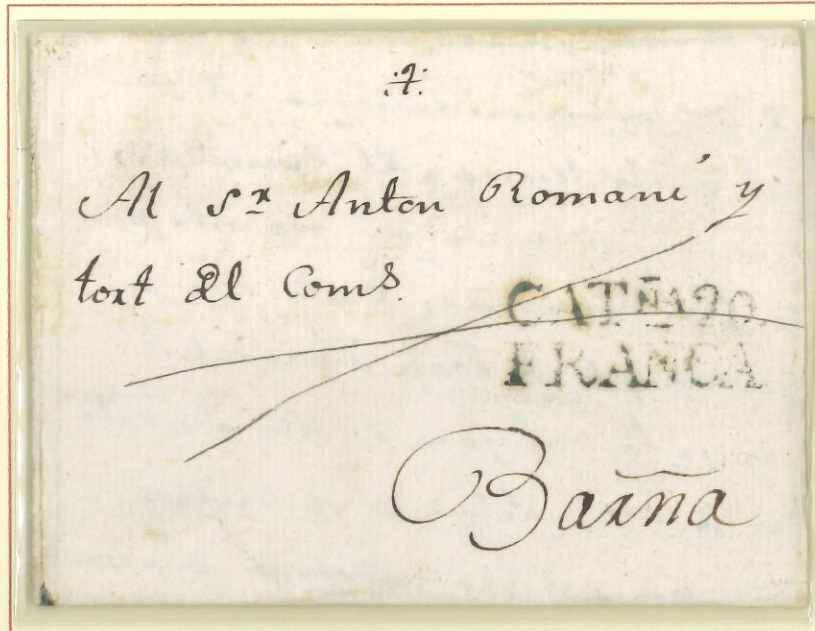 Al Sr. Anton Romaní y
tort del Coms.
CATÑA 20.
FRANCA
Barña